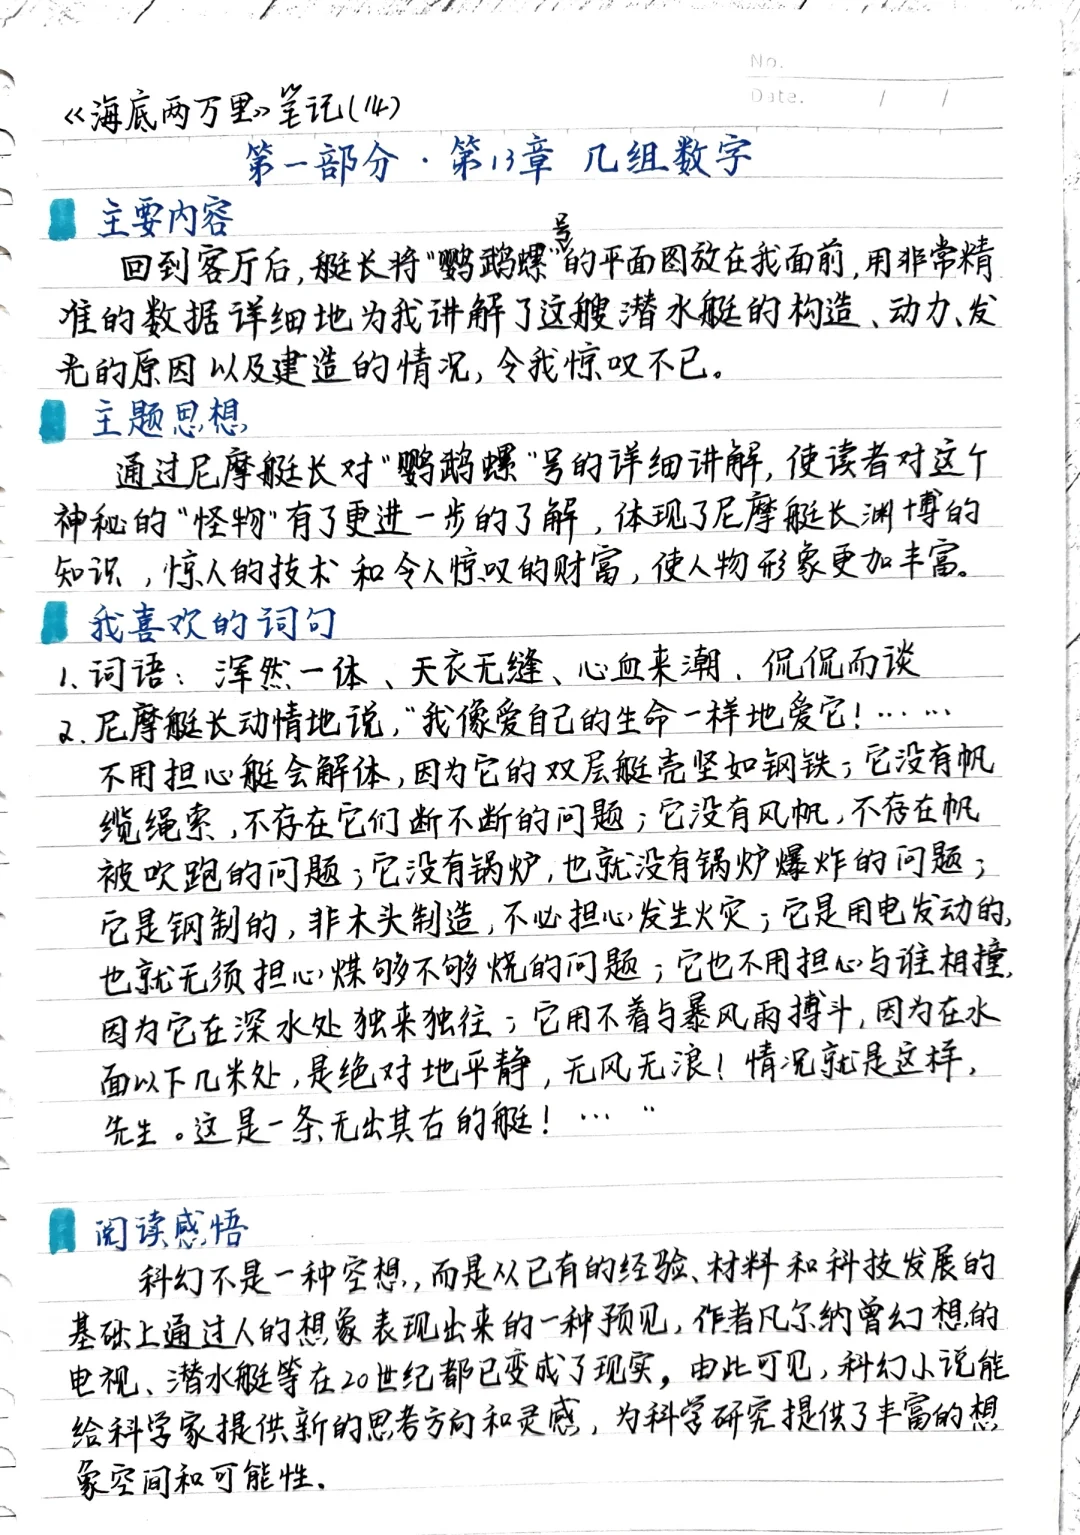 No.
Date. / /
《海底两万里》笔记(14)
第一部分·第13章 几组数字
主要内容
回到客厅后,艇长将“鹦鹉螺号”的平面图放在我面前,用非常精
准的数据详细地为我讲解了这艘潜水艇的构造、动力、发
光的原因以及建造的情况,令我惊叹不已。
主题思想
通过尼摩艇长对“鹦鹉螺”号的详细讲解,使读者对这个
神秘的“怪物”有了更进一步的了解,体现了尼摩艇长渊博的
知识,惊人的技术和令人惊叹的财富,使人物形象更加丰富。
我喜欢的词句
1.词语:浑然一体、天衣无缝、心血来潮、侃侃而谈
2.尼摩艇长动情地说,“我像爱自己的生命一样地爱它!……
不用担心艇会解体,因为它的双层艇壳坚如钢铁;它没有帆
缆绳索,不存在它们断不断的问题;它没有风帆,不存在帆
被吹跑的问题;它没有锅炉,也就没有锅炉爆炸的问题;
它是钢制的,非木头制造,不必担心发生火灾;它是用电发动的,
也就无须担心煤够不够烧的问题;它也不用担心与谁相撞,
因为它在深水处独来独往;它用不着与暴风雨搏斗,因为在水
面以下几米处,是绝对地平静,无风无浪!情况就是这样,
先生。这是一条无出其右的艇!…”
阅读感悟
科幻不是一种空想,而是从已有的经验、材料和科技发展的
基础上通过人的想象表现出来的一种预见,作者凡尔纳曾幻想的
电视、潜水艇等在20世纪都已变成了现实。由此可见,科幻小说能
给科学家提供新的思考方向和灵感,为科学研究提供了丰富的想
象空间和可能性。